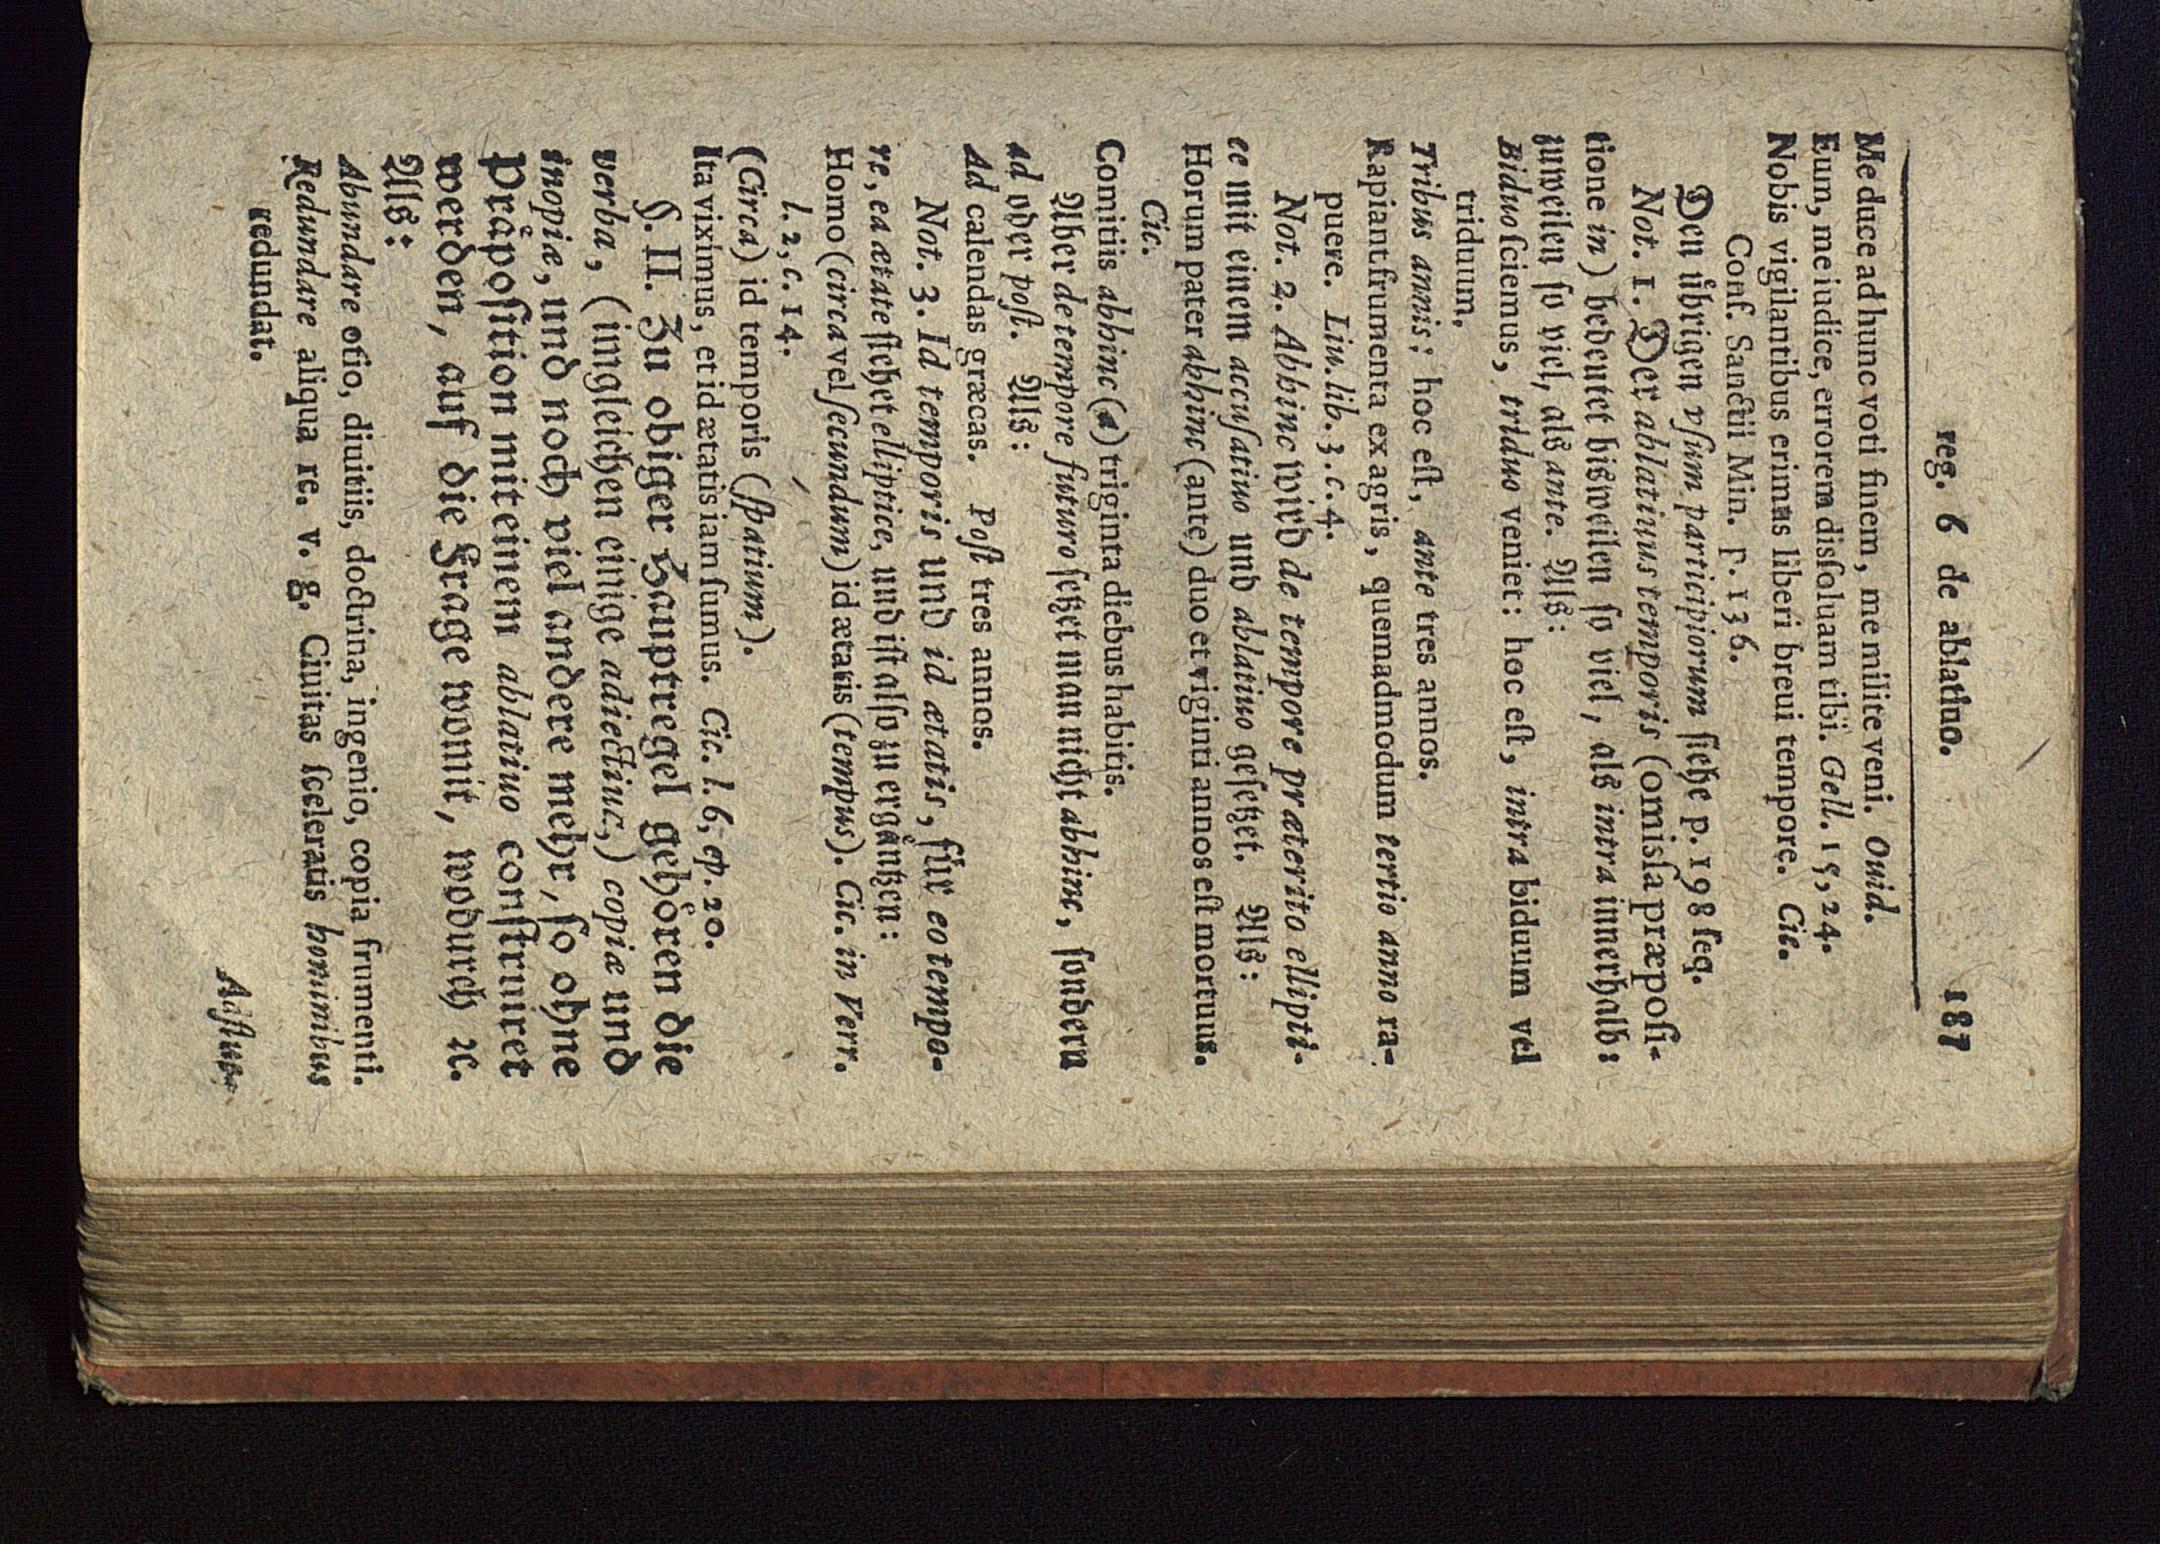 reg. 6 de ablatiuo. 187
Me duce ad hunc voti finem, me milite veni. Ouid.
Eum, me iudice, errorem disſoluam tibi. Gell. 15, 24.
Nobis vigilantibus erimus liberi breui tempore. Cic.
Conf. Sanctii Min. p. 136.
Den uͤbrigen vſum participiorum ſiehe p. 198 ſeq.
Not. 1. Der ablatiuus temporis (omisſa præpoſi-
tione in) bedeutet bisweilen ſo viel, als intra innerhalb:
zuweilen ſo viel, als ante. Als:
Biduo ſciemus, triduo veniet: hoc eſt, intra biduum vel
triduum,
Tribus annis; hoc eſt, ante tres annos.
Rapiant frumenta ex agris, quemadmodum tertio anno ra-
puere. Liu. lib. 3. c. 4.
Not. 2. Abhinc wird de tempore præterito ellipti-
ce mit einem accuſatiuo und ablatiuo geſetzet. Als:
Horum pater abhinc (ante) duo et viginti annos eſt mortuus.
Cic.
Comitiis abhinc (a) triginta diebus habitis.
Aber de tempore futuro ſetzet man nicht abhinc, ſondern
ad oder poſt. Als:
Ad calendas græcas. Poſt tres annos.
Not. 3. Id temporis und id ætatis, fuͤr eo tempo-
re, ea ætate ſtehet elliptice, und iſt alſo zu ergaͤntzen:
Homo (circa vel ſecundum) id ætatis (tempus). Cic. in Verr.
l. 2, c. 14.
(Circa) id temporis (ſpatium).
Ita viximus, et id ætatis iam ſumus. Cic. l. 6, ep. 20.
§. II. Zu obiger Hauptregel gehoͤren die
verba, (imgleichen einige adiectiuc,) copiæ und
inopiæ, und noch viel andere mehr, ſo ohne
Praͤpoſition mit einem ablatiuo conſtruiret
werden, auf die Frage womit, wodurch ꝛc.
Als:
Abundare otio, diuitiis, doctrina, ingenio, copia frumenti.
Redundare aliqua re. v. g. Ciuitas ſceleratis hominibus
redundat.
Adflue-